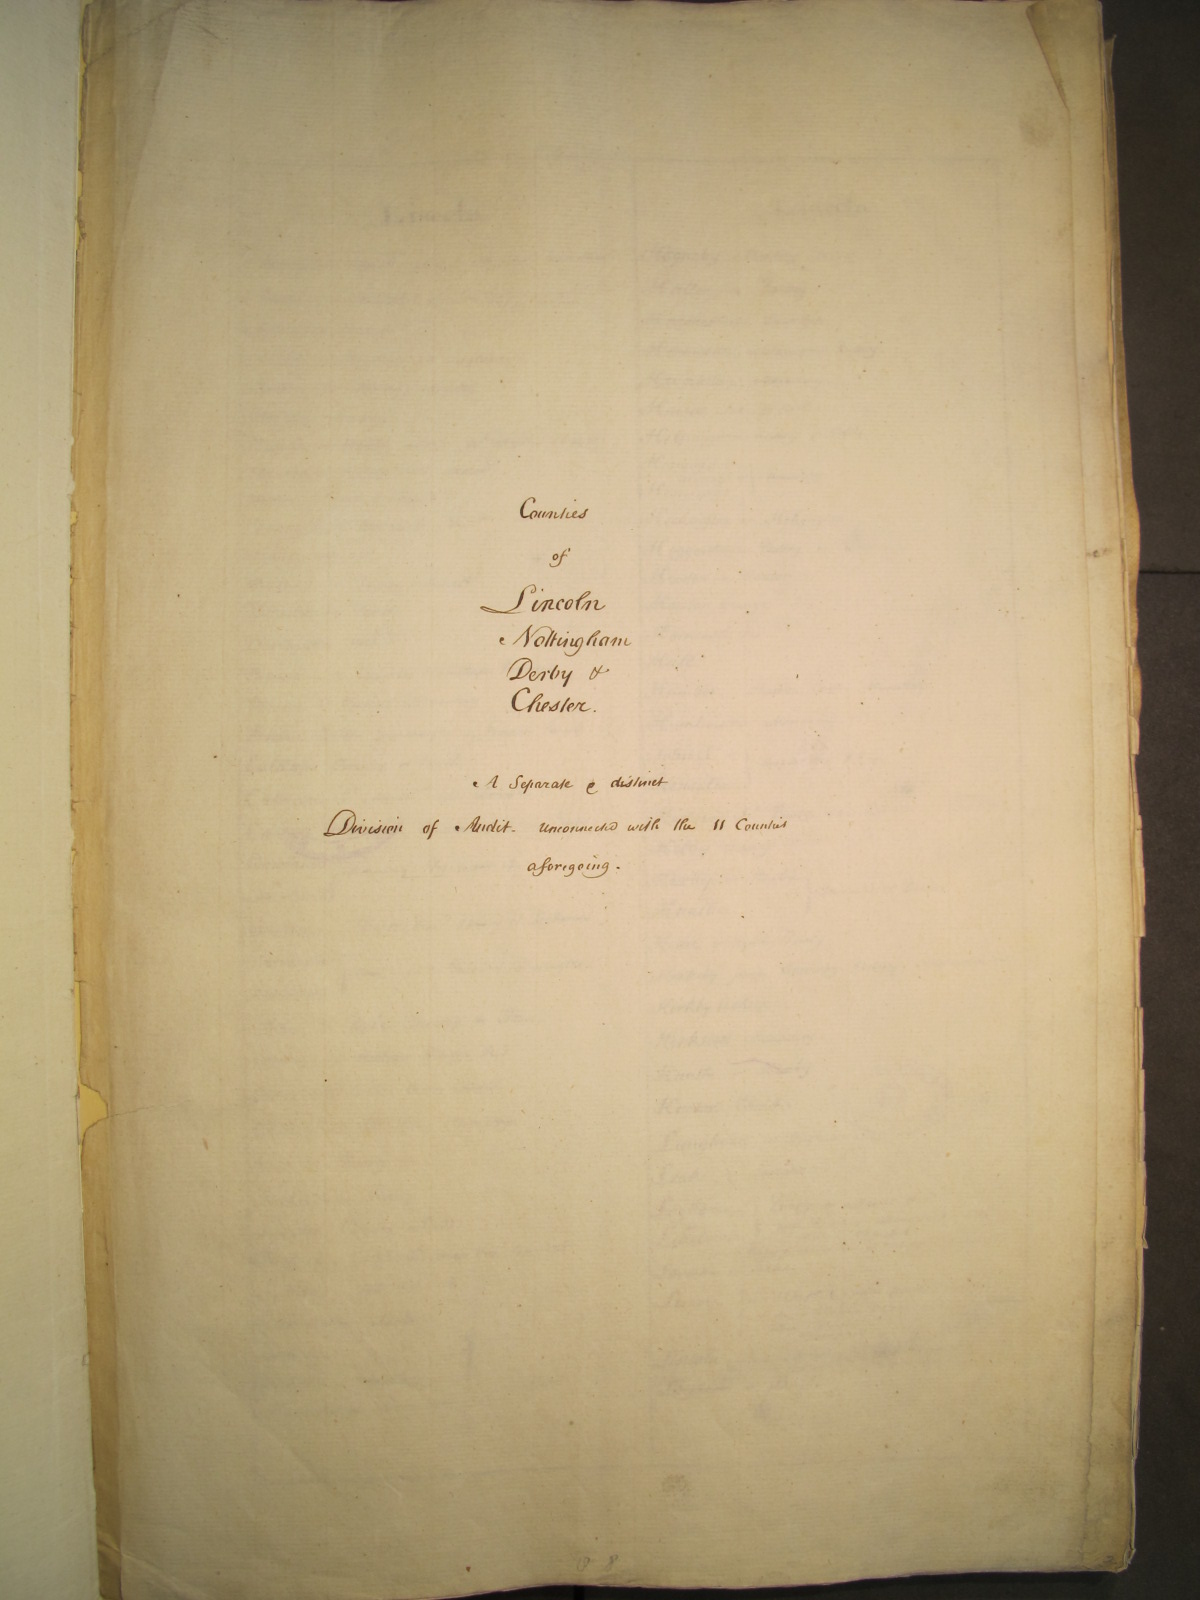 Counties
of
Lincoln
Nottingham
Derby &
Chester.
A Separate & distinct
Division of Audit. unconnected with the 11 Counties
aforegoing.